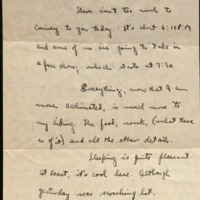 There isn't too much to
convey to you today. It's about 6:15 P.M
and some of us are going to take in
a free show, which starts at 7:30.
Everything, now that I am
more acclimated, is much more to
my liking. The food, work, (what there
is of it) and all the other details.
Sleeping is quite pleasant.
at least, it's cool here. Although
yesterday was scorching hot.